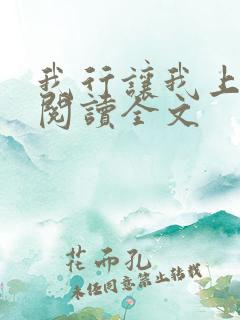 我行讓我上
閱讀全文
花而孔
未经同意禁止转载